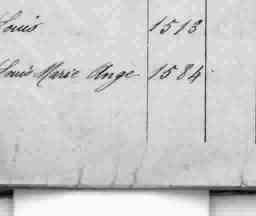 Louis 1513
Louis Marie Ange 1584